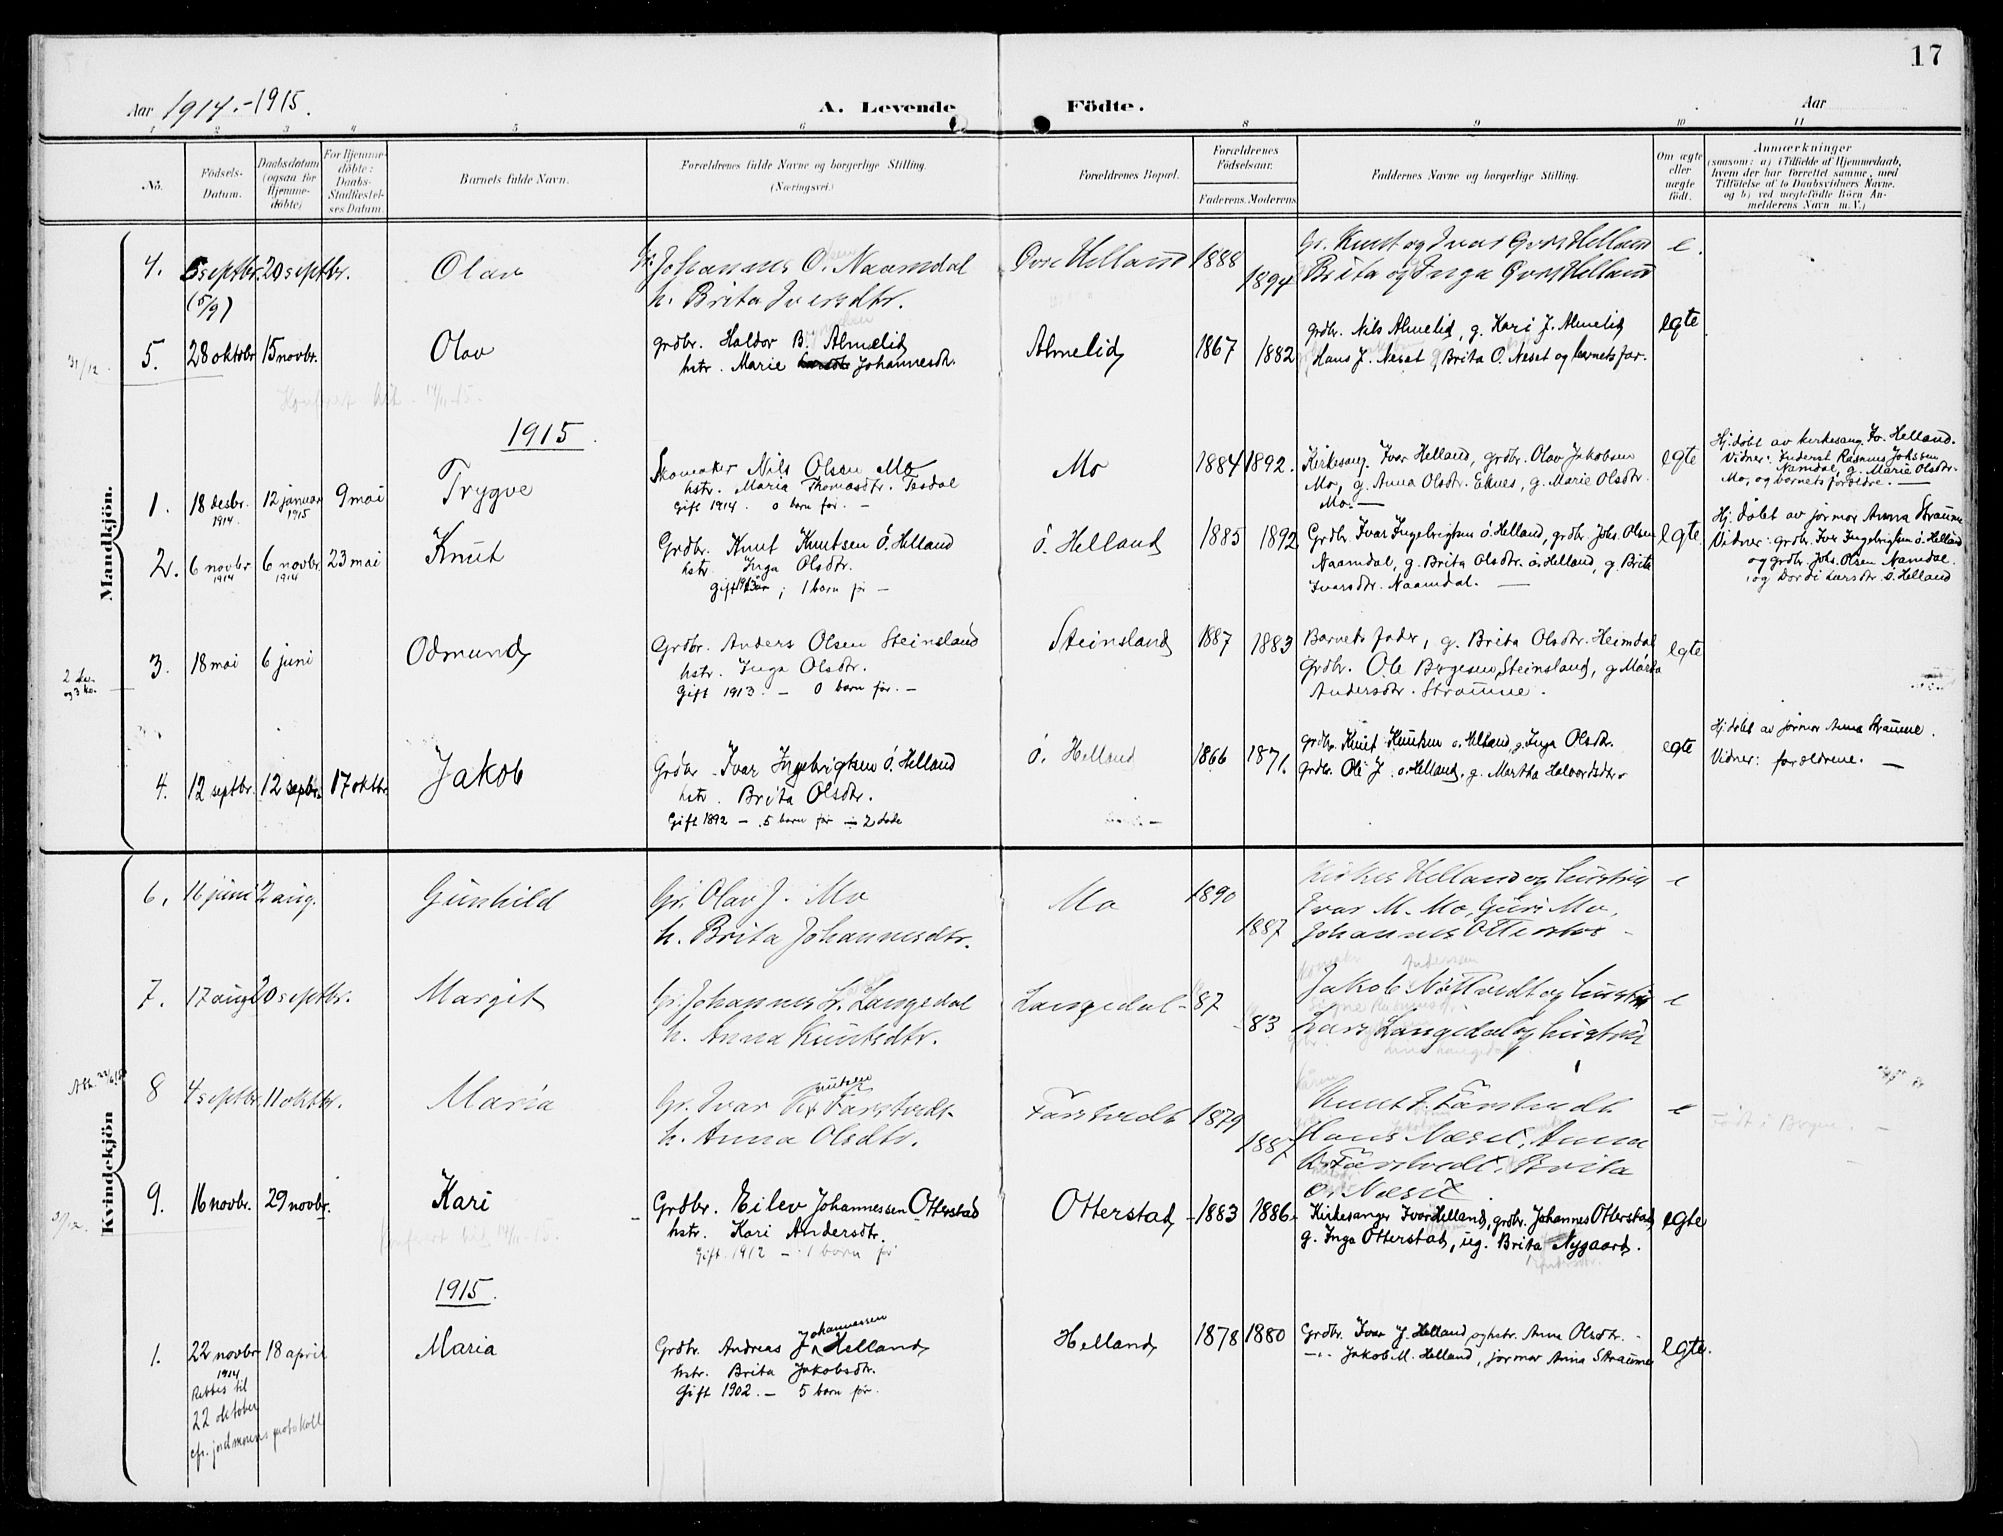 17
Aar 1914.-1915.
A. Levende Födte.
Aar
1 2 3 4 5 6 8 9 10 11
No.
Födsels-Datum.
Daabsdatum (ogsaa for Hjemme-döbte)
For Hjemme-döbte: Daabs-Stadfæstel-ses Datum
Barnets fulde Navn.
Forældrenes fulde Navne og borgerlige Stilling. (Næringsvei.)
Forældrenes Bopæl.
Forældrenes Födselsaar.
Faderens. Moderens.
Faddernes Navne og borgerlige Stilling.
Om ægte eller uægte födt.
Anmærkninger
(saasom: a) i Tilfælde af Hjemmedaab, hvem der har forrettet samme, med Tilföielse af to Daabsvidners Navne. og b) ved uægtefödte Börn An-melderens Navn m. V.)
Mandkjön.
4. 5 septbr. 20 septbr. Olav Johannes O. Naamdal Øvre Helland 1888 Gr. Knut og Ivar Øvre Helland e.
(5/9) h. Brita Iversdtr. 1894 Brita og Inga Øvre Helland
31/12
5. 28 oktbr 15 novbr. Olav grdbr. Haldor B. Almelid Almelid 1867 1882 grdbr. Nils Almelid, g. Kari J. Almelid egte
hstr. Marie Johannesdtr. Hans J. Neset g Brita O. Neset og barnets far.
14/11-15.
1915.
1. 18 desbr. 1914. 12 januar 1915 9 mai Trygve Skomaker Nils Olsen Mo Mo 1884 1892. Kirkesang. Ivar Helland, grdbr. Olav Jakobsen egte Hj. døbt av kirkesang. Iv. Helland.
hstr. Maria Thomasdtr. Tesdal Mo, g. Anna Olsdtr. Eknes, g. Marie Olsdtr. Vidner: Inderst Rasmus Johssen
Gift 1914. 0 barn før. - Mo. — Namdal, g. Marie Olsdtr.
Mo, og barnets forældre. —
2. 6 novbr 1914 6 novbr. 1914 23 mai Knut Grdbr. Knut Knutsen ö. Helland ö. Helland 1885 1892 Grdbr. Ivar Ingebrigtsen ö. Helland, grdbr Johs. Olsen egte. Hj. døbt av jormor Anna Straume
hstr. Inga Olsdtr. Naamdal, g. Brita Olsdtr. ö. Helland, g. Brita Vidner: grdbr. Ivar Ingebrigtsen ö. Helland
gift 1913; 1 barn før — Ivarsdtr. Naamdal. — og grdbr. Johs. Olsen Namdal.
og Dordi Larsdtr ö. Helland
3. 18 mai 6 juni Odmund Grdbr. Anders Olsen Steinsland Steinsland 1887 1883 Barnets fader, g. Brita Olsdtr. Heimdal egte
hstr. Inga Olsdtr. Grdbr. Ole Børgesen Steinsland, g Márta
Gift 1913. — 0 barn før. — Andersdtr. Straume.
4. 12 septbr. 12 septbr. 17 oktbr. Jakob Grdbr. Ivar Ingebrigtsen ö. Helland ö. Helland 1866 1871. grdbr. Knut Knutsen ö. Helland, g. Inga Olsdtr. egte Hj. døbt av jormor Anna Straume.
hstr. Brita Olsdtr. Grdbr. Ole J. ö. Helland. g. Martha Halvordsdtr. Vidner: forældrene. —
Gift 1892 — 5 barn før — 2 døde
Kvindekjön
6. 16 juni 2 aug. Gunhild Gr. Olav J. Mo Mo 1890 Helland og hustru e
h. Brita Johannesdtr. 1887 Ivar M. Mo, Guri Mo,
Johannes Otterstad
7. 17 aug 20 septbr. Margit Gr. Johannes L. Langedal Langedal - 87 Jakob Nöttvedt og hustru e
h. Anna Knutsdtr. - 83 Lars Langedal og hustru
8 4 septbr. 11 oktbr. Maria Gr. Ivar Knutsen Farstvedt Farstvedt 1879 Knut I. Farstvedt e Født i Bergen. —
h. Anna Olsdtr. 1887 Hans Neset, Anna
K. Farstvedt, Brita
O. Neset
31/12.
9. 16 novbr. 29 novbr. Kari Grdbr. Eilev Johannessen Otterstad Otterstad 1883 1886 Kirkesanger Ivar Helland, grdbr. Johannes Otterstad, egte
hstr. Kari Andersdtr. g. Inga Otterstad, ug. Brita Nygaard.
Gift. 1912 — 1 barn før
14/11-15.
1915.
1. 22 novbr 1914 18 april Maria Grdbr. Andreas Johannessen Helland Helland 1878 1880 Grdbr. Ivar J. Helland og hstr. Anna Olsdtr. - egte.
Rettes til hstr. Brita Jakobsdtr. —"— Jakob M. Helland, jormor Anna Straume
22 oktober Gift 1902. — 5 barn før.
cfr. jordmorens protokoll